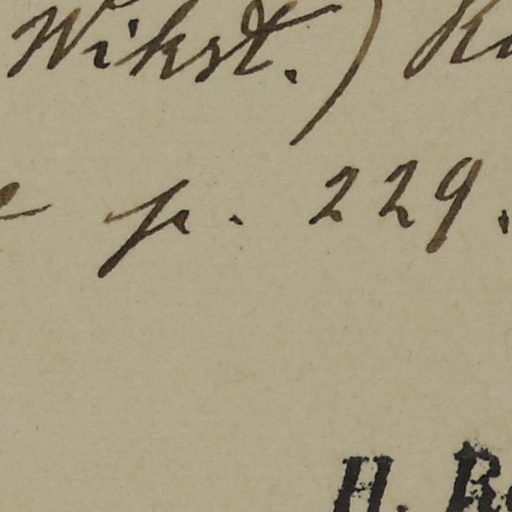 Wikst.)
p. 229.
H.